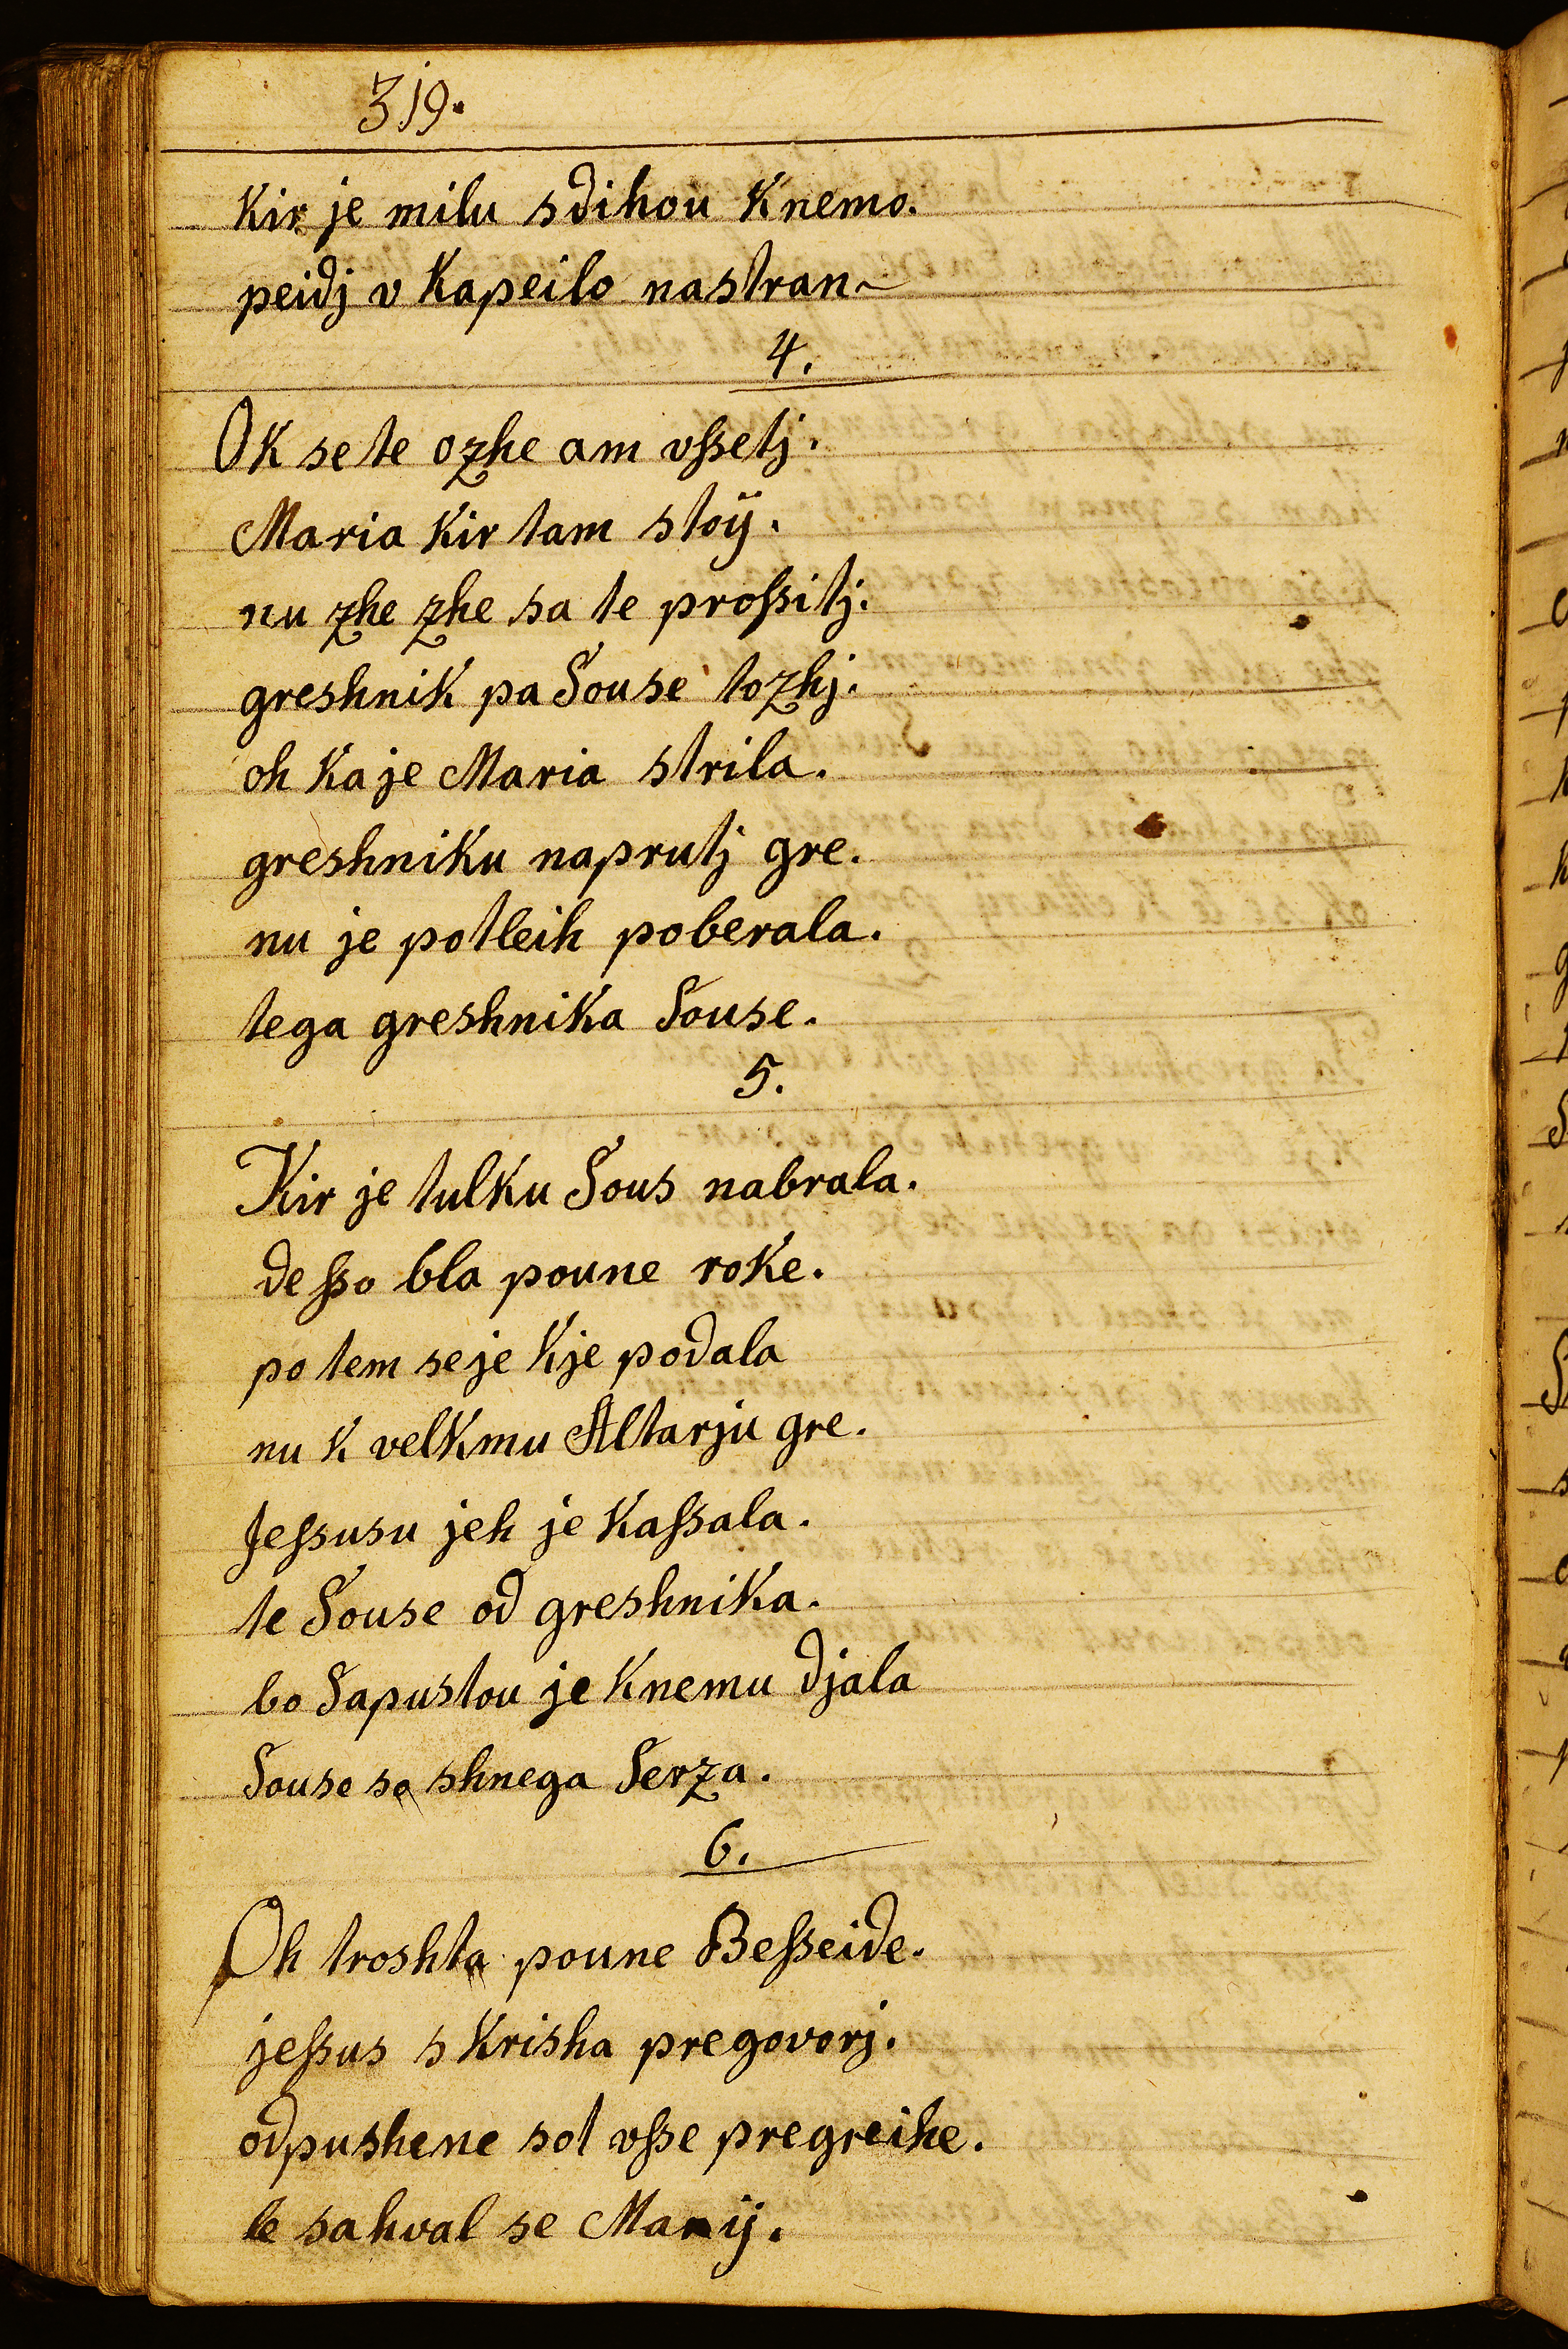 319.
Kir je milu sdihou K nemo.
peidj v Kapeilo nastran~
4.
OK se te ozhe am vſsetj.
Maria Kir tam stoij.
nu zhe zhe sa te proſsitj.
greshnik pa Souse tozhj.
oh Ka je Maria strila.
greshniku naprutj gre.
nu je potleih poberala.
tega greshnika Souse.
5.
Kir je tulku Sous nabrala.
de ſso bla poune roke.
po tem se je Kje podala
nu k velkmu Altarju gre.
Jeſsusu jeh je Kaſsala.
te Souse od greshnika.
bo Sapustou je Knemu djala
Souse so shnega Serza.
6.
Oh troshta poune Beſseide.
jeſsus s Krisha pregovorj.
odpushene sot vſse pregreihe.
le sahval se Marij.